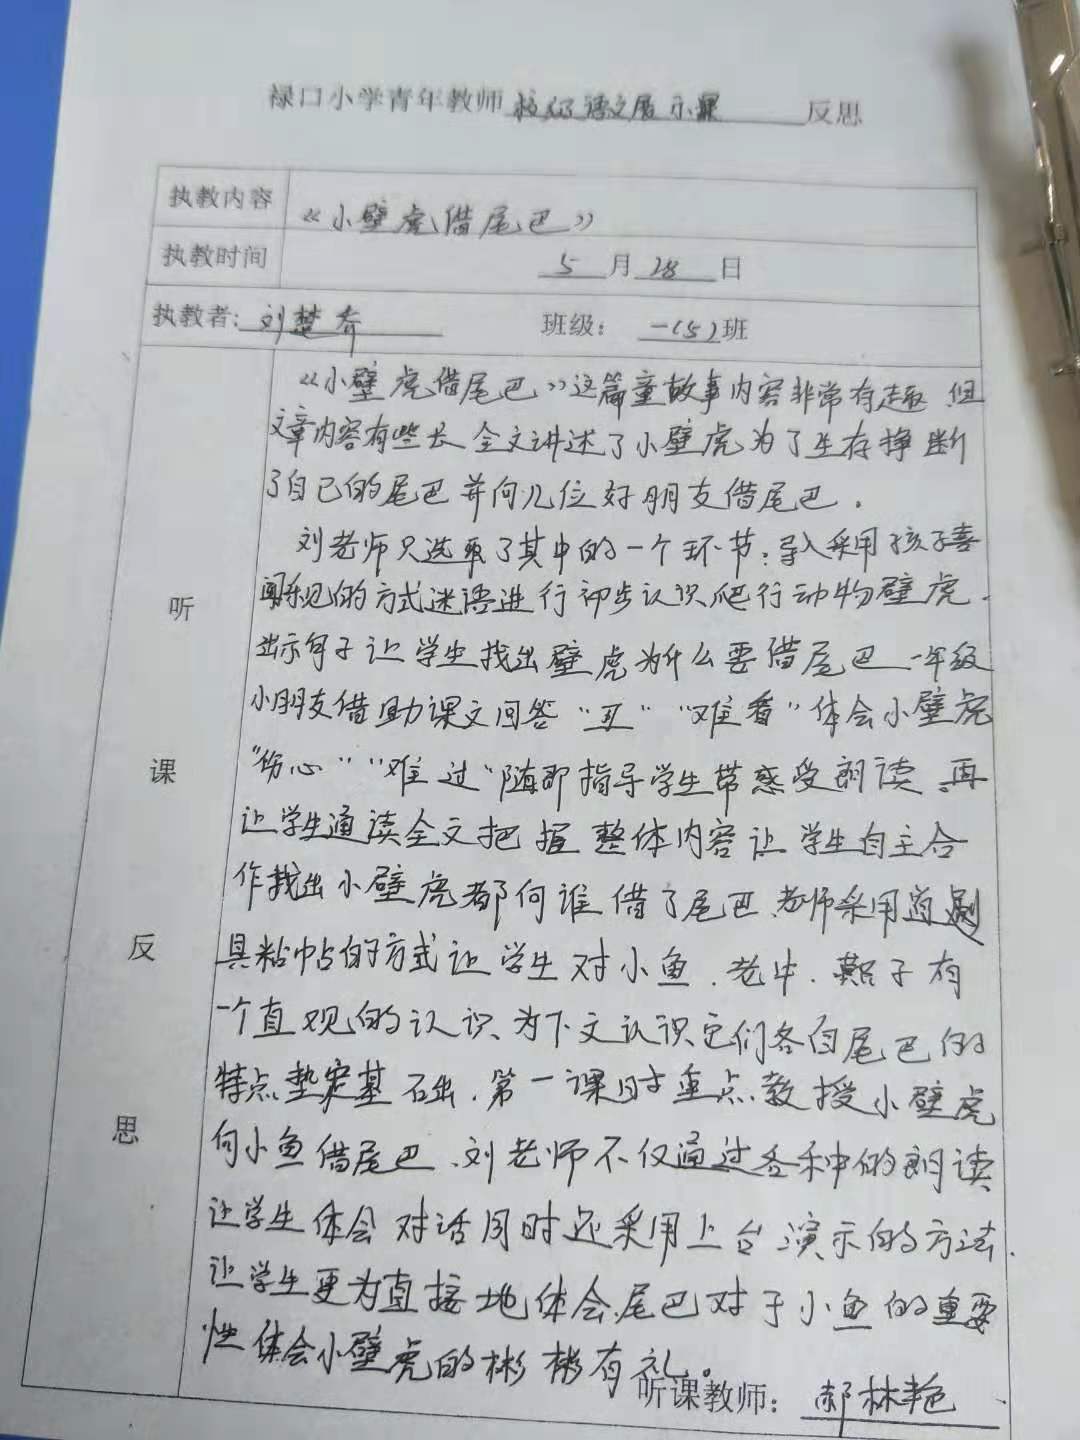 禄口小学青年教师 校级语文展示课 反思
执教内容 《小壁虎借尾巴》
执教时间 5月28日
执教者: 刘楚乔 班级: 一(5)班
听课反思
《小壁虎借尾巴》这篇童故事内容非常有趣 但
文章内容有些长 全文讲述了小壁虎为了生存挣断
了自己的尾巴并向几位好朋友借尾巴.
刘老师只选取了其中的一个环节:导入采用孩子喜
闻乐见的方式迷语进行初步认识爬行动物壁虎.
出示句子让学生找出壁虎为什么要借尾巴.一年级
小朋友借助课文回答"丑""难看"体会小壁虎
"伤心""难过"随即指导学生带感受朗读.再
让学生通读全文把握整体内容让学生自主合
作找出小壁虎都向谁借了尾巴.老师采用道
具粘帖的方式让学生对小鱼.老牛.燕子有
一个直观的认识、为下文认识它们各自尾巴的
特点垫定基础.第一课时重点教授小壁虎
向小鱼借尾巴.刘老师不仅通过各种的朗读
让学生体会对话同时还采用上台演示的方法.
让学生更为直接地体会尾巴对于小鱼的重要
性体会小壁虎的彬彬有礼。
听课教师: 郝林艳